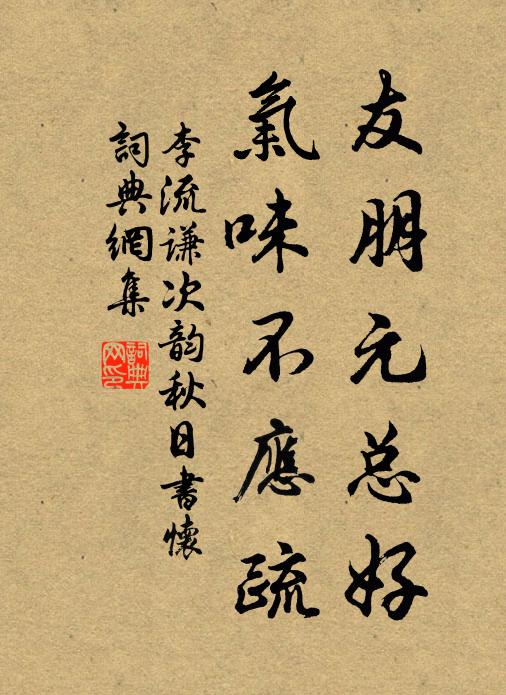 友朋元总好
氣味不應疏
李流谦次韵秋日書懷
詞典網集
詞典網印